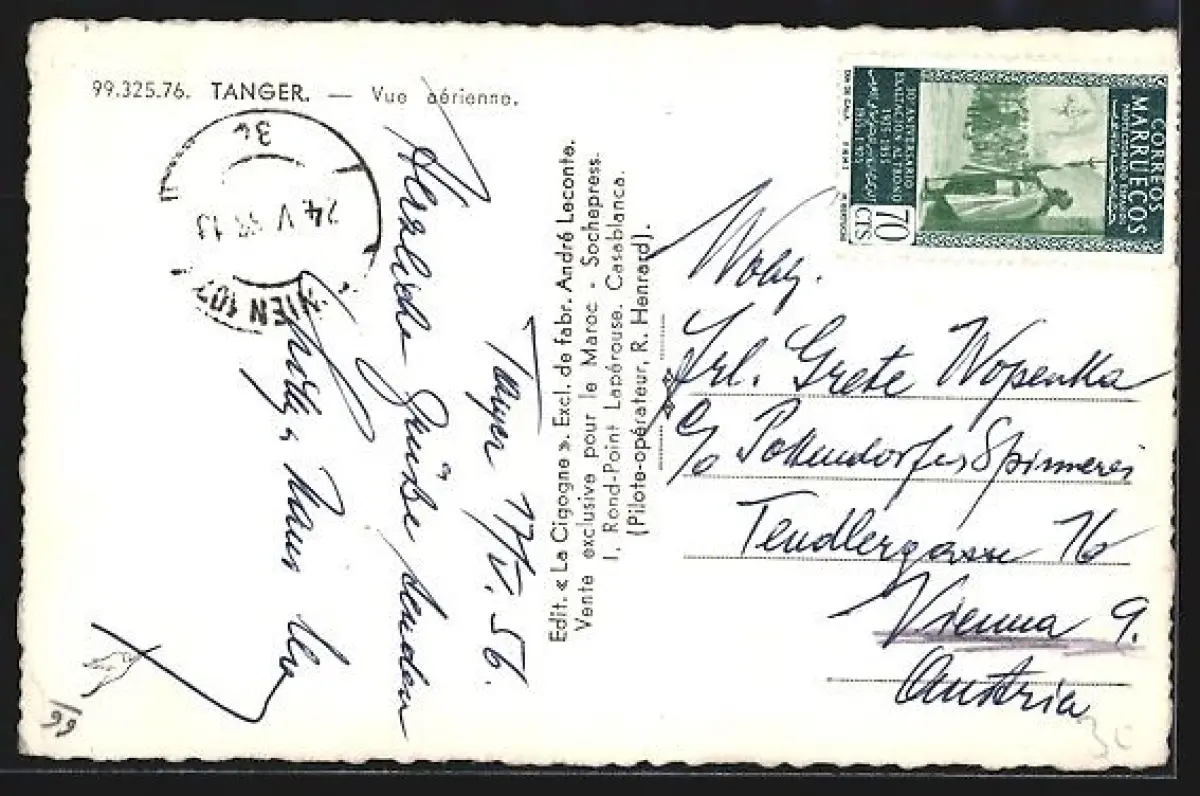 99.325.76. TANGER. — Vue aérienne.
WIEN 107
Tanger 17/V. 56.
Herzliche Grüße senden
Edit. « La Cigogne ». Excl. de fabr. André Leconte.
Vente exclusive pour le Maroc - Sochepress.
1, Rond-Point Lapérouse. Casablanca.
(Pilote-opérateur, R. Henrard).
CORREOS
MARRUECOS
PROTECTORADO ESPAÑOL
XXX ANIVERSARIO
EXALTACIÓN AL TRONO
70
CTS
Frl. Grete Wopenka
c/o Pottendorfer Spinnerei
Tendlergasse 16
Vienna 9.
Austria